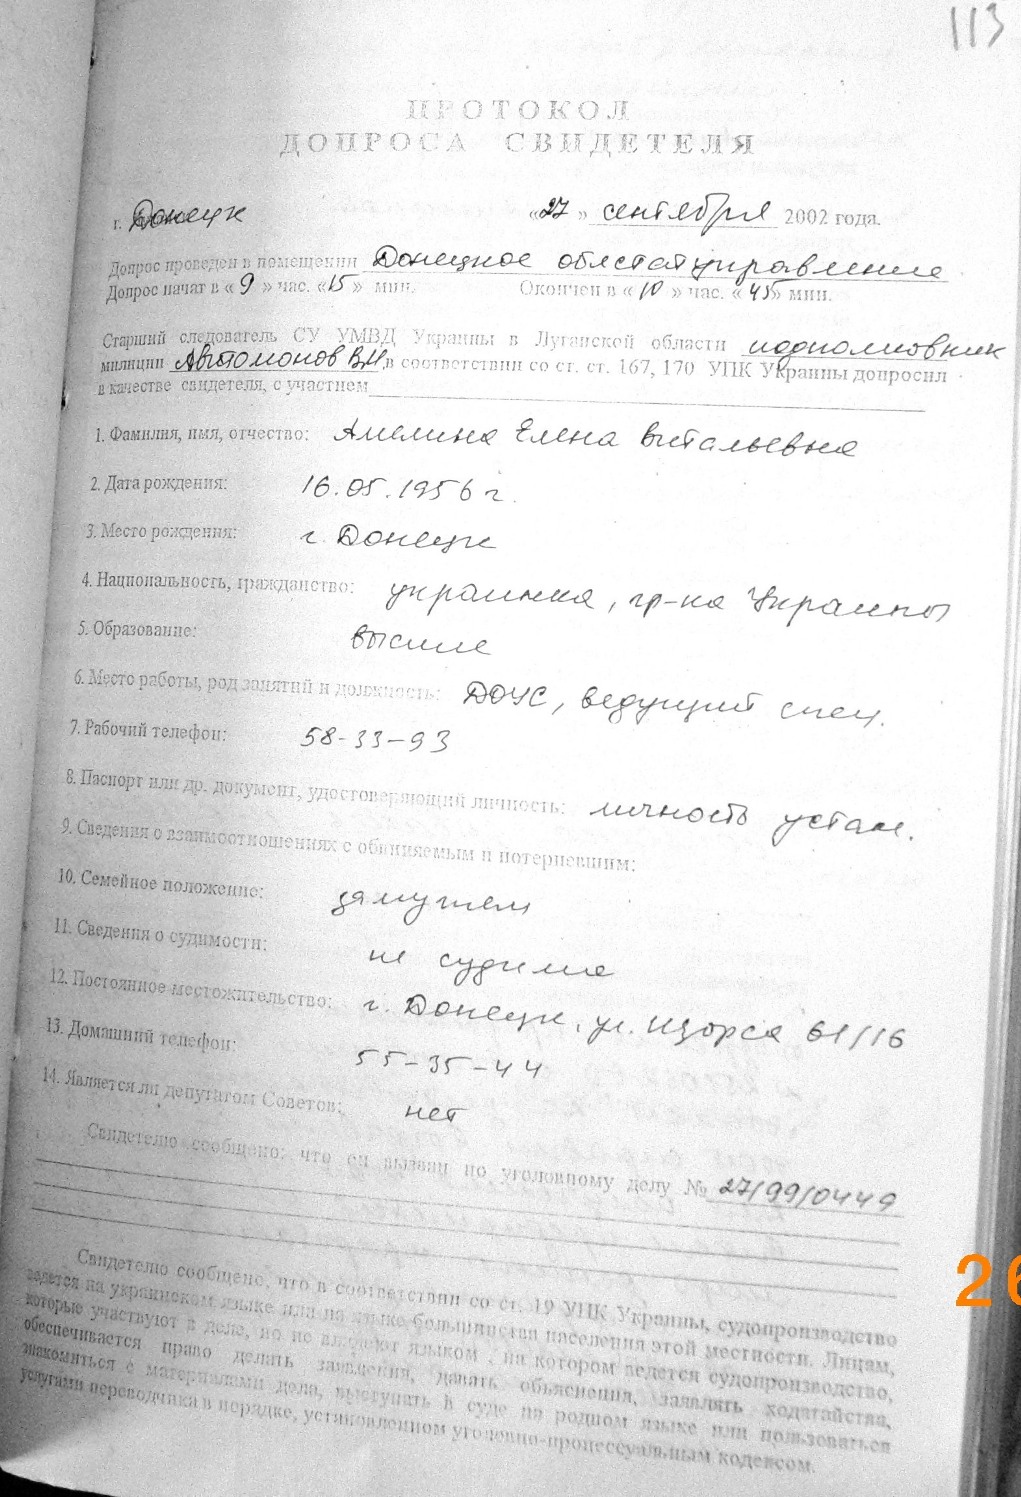 113
ПРОТОКОЛ
ДОПРОСА СВИДЕТЕЛЯ
г. Донецк «27» сентября 2002 года.
Допрос проведен в помещении Донецкое облстатуправление
Допрос начат в «9» час. «15» мин. Окончен в «10» час. «45» мин.
Старший следователь СУ УМВД Украины в Луганской области подполковник
милиции Автомонов В.Н, в соответствии со ст. ст. 167, 170 УПК Украины допросил
в качестве свидетеля, с участием
1. Фамилия, имя, отчество: Амелина Елена Витальевна
2. Дата рождения: 16.05.1956 г.
3. Место рождения: г. Донецк
4. Национальность, гражданство: украинка, гр-ка Украины
5. Образование: высшее
6. Место работы, род занятий и должность: ДОУС, ведущий спец.
7. Рабочий телефон: 58-33-93
8. Паспорт или др. документ, удостоверяющий личность: личность устан.
9. Сведения о взаимоотношениях с обвиняемым и потерпевшим:
10. Семейное положение: замужем
11. Сведения о судимости: не судима
12. Постоянное местожительство: г. Донецк, ул. Щорса 61/16
13. Домашний телефон: 55-35-44
14. Является ли депутатом Советов: нет
Свидетелю сообщено: что он вызван по уголовному делу № 27/99/0449
Свидетелю сообщено, что в соответствии со ст. 19 УПК Украины, судопроизводство
ведется на украинском языке или на языке большинства населения этой местности. Лицам,
которые участвуют в деле, но не владеют языком, на котором ведется судопроизводство,
обеспечивается право делать заявления, давать объяснения, заявлять ходатайства,
знакомиться с материалами дела, выступать в суде на родном языке или пользоваться
услугами переводчика в порядке, установленном уголовно-процессуальным кодексом.
26